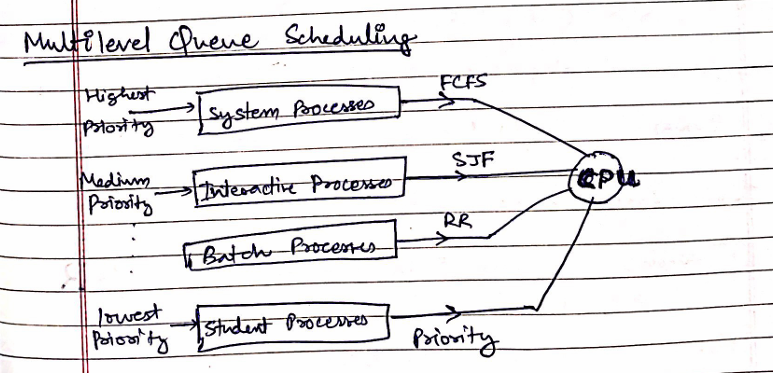 Multilevel Queue Scheduling
Highest
Priority
System Processes
FCFS
Medium
Priority
Interactive Processes
SJF
CPU
Batch Processes
RR
lowest
Priority
Student Processes
Priority